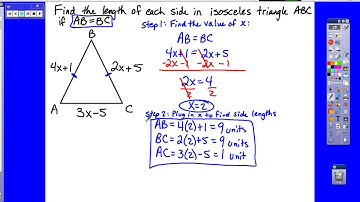 Find the length of each side in isosceles triangle ABC
if AB=BC
Step 1: Find the value of x:
AB=BC
4x+1 = 2x+5
-2x -1 -2x -1
2x = 4
2 2
x=2
B
4x+1
2x+5
A
C
3x-5
Step 2: Plug in x to find side lengths
AB=4(2)+1=9 units
BC=2(2)+5=9 units
AC=3(2)-5=1 unit